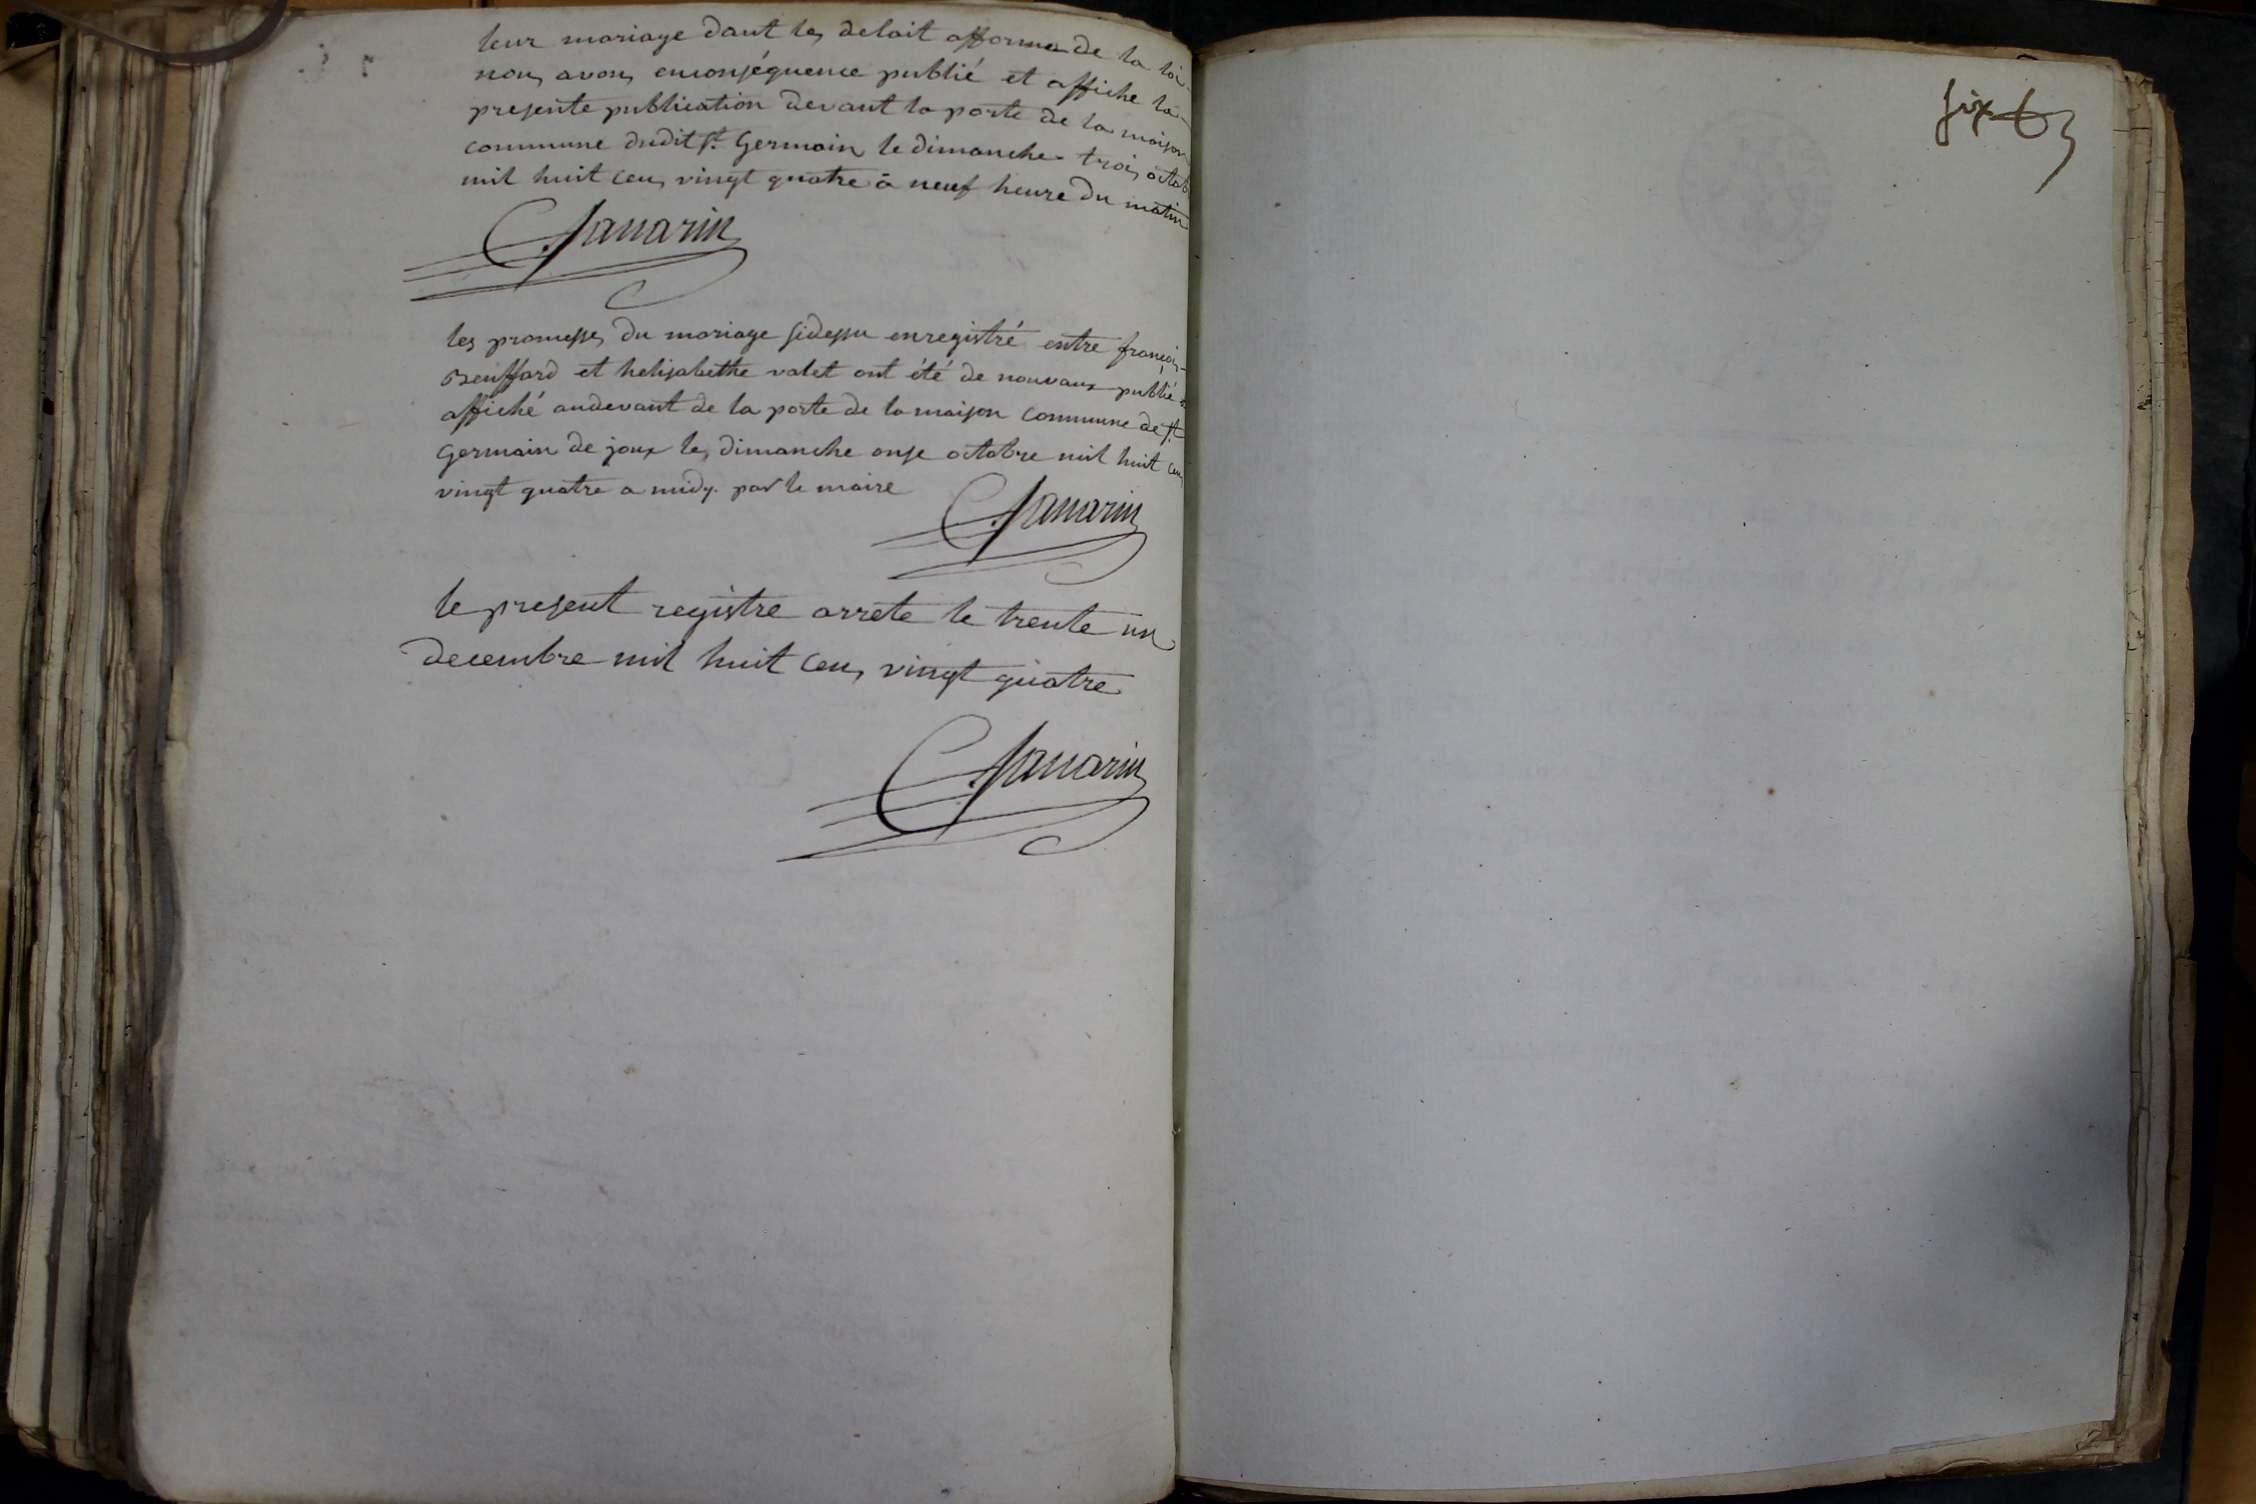 leur mariage dant les delait afforme de la loi
nous avons enconséquence publié et affiche la
presente publication devant la porte de la maison
commune dudit st. Germain le dimanche trois octob
mil huit cens vingt quatre a neuf heure du matin
C. Savarin
les promesses du mariage sidessu enregistré entre françois
et helisabethe valet ont été de nouvaux publié
affiché audevant de la porte de la maison commune de st
Germain de joux les dimanche onse octobre mil huit cens
vingt quatre a midy. par le maire
C. Savarin
le present registre arrete le trente un
decembre mil huit cens vingt quatre
C. Savarin
six